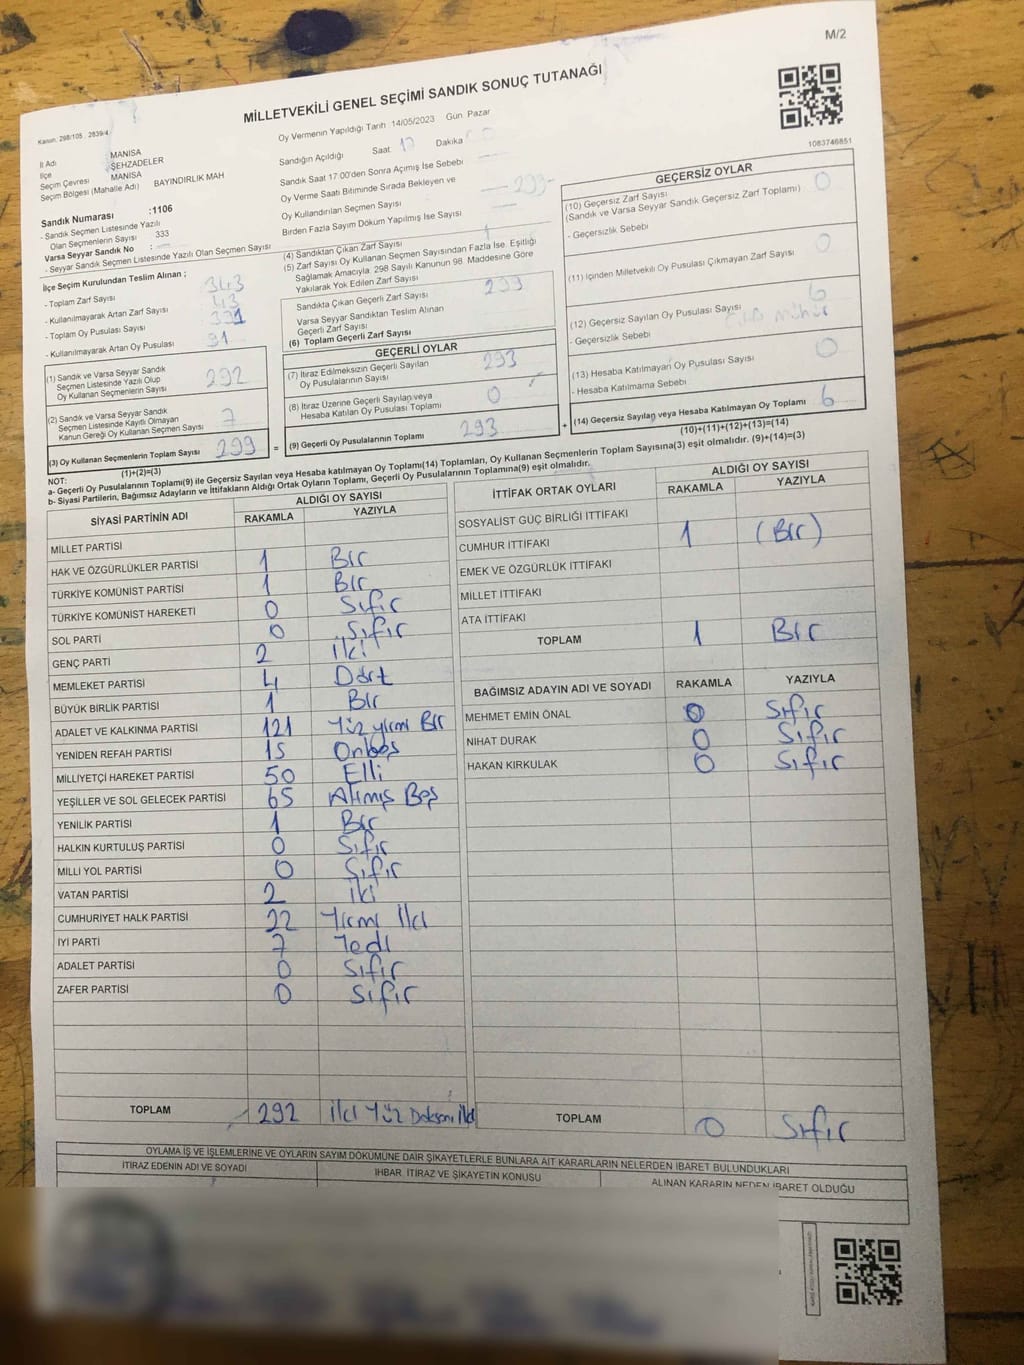 M/2
MİLLETVEKİLİ GENEL SEÇİMİ SANDIK SONUÇ TUTANAĞI
Kanun, 298/105 , 2839/4
Oy Vermenin Yapıldığı Tarih 14/05/2023 Gün Pazar
1083746851
İl Adı : MANİSA
İlçe : ŞEHZADELER
Seçim Çevresi : MANİSA
Seçim Bölgesi (Mahalle Adı) BAYINDIRLIK MAH
Sandık Numarası :1106
- Sandık Seçmen Listesinde Yazılı
Olan Seçmenlerin Sayısı 333
Varsa Seyyar Sandık No :
- Seyyar Sandık Seçmen Listesinde Yazılı Olan Seçmen Sayısı
İlçe Seçim Kurulundan Teslim Alınan ;
- Toplam Zarf Sayısı 343
- Kullanılmayarak Artan Zarf Sayısı 43
- Toplam Oy Pusulası Sayısı 391
- Kullanılmayarak Artan Oy Pusulası 91
(1) Sandık ve Varsa Seyyar Sandık
Seçmen Listesinde Yazılı Olup
Oy Kullanan Seçmenlerin Sayısı 292
(2) Sandık ve Varsa Seyyar Sandık
Seçmen Listesinde Kayıtlı Olmayan
Kanun Gereği Oy Kullanan Seçmen Sayısı 7
(3) Oy Kullanan Seçmenlerin Toplam Sayısı 299 =
(1)+(2)=(3)
Sandığın Açıldığı Saat 17 Dakika
Sandık Saat 17:00'den Sonra Açımış İse Sebebi
Oy Verme Saati Bitiminde Sırada Bekleyen ve
Oy Kullandırılan Seçmen Sayısı
Birden Fazla Sayım Dökum Yapılmış İse Sayısı
(4) Sandıktan Çıkan Zarf Sayısı
(5) Zarf Sayısı Oy Kullanan Seçmen Sayısından Fazla İse. Eşitliği
Sağlamak Amacıyla. 298 Sayılı Kanunun 98. Maddesine Göre
Yakılarak Yok Edilen Zarf Sayısı
Sandıkta Çıkan Geçerli Zarf Sayısı 299
Varsa Seyyar Sandıktan Teslim Alınan
Geçerli Zarf Sayısı
(6) Toplam Geçerli Zarf Sayısı
GEÇERLİ OYLAR
(7) İtiraz Edilmeksizin Geçerli Sayılan
Oy Pusulalarının Sayısı 293
(8) İtiraz Üzerine Geçerli Sayılan veya
Hesaba Katılan Oy Pusulası Toplamı 0
(9) Geçerli Oy Pusulalarının Toplamı 293 +
GEÇERSİZ OYLAR
(10) Geçersiz Zarf Sayısı 0
(Sandık ve Varsa Seyyar Sandık Geçersiz Zarf Toplamı)
- Geçersizlik Sebebi
(11) İçinden Milletvekili Oy Pusulası Çıkmayan Zarf Sayısı 0
(12) Geçersiz Sayılan Oy Pusulası Sayısı 6
- Geçersizlik Sebebi mühür
(13) Hesaba Katılmayan Oy Pusulası Sayısı 0
- Hesaba Katılmama Sebebi
(14) Geçersiz Sayılan veya Hesaba Katılmayan Oy Toplamı 6
(10)+(11)+(12)+(13)=(14)
NOT:
a- Geçerli Oy Pusulalarının Toplamı(9) ile Geçersiz Sayılan veya Hesaba katılmayan Oy Toplamı(14) Toplamları, Oy Kullanan Seçmenlerin Toplam Sayısına(3) eşit olmalıdır. (9)+(14)=(3)
b- Siyasi Partilerin, Bağımsız Adayların ve İttifakların Aldığı Ortak Oyların Toplamı, Geçerli Oy Pusulalarının Toplamına(9) eşit olmalıdır.
SİYASİ PARTİNİN ADI ALDIĞI OY SAYISI
RAKAMLA YAZIYLA
MİLLET PARTİSİ
HAK VE ÖZGÜRLÜKLER PARTİSİ 1 Bir
TÜRKİYE KOMÜNİST PARTİSİ 1 Bir
TÜRKİYE KOMÜNİST HAREKETİ 0 Sıfır
SOL PARTİ 0 Sıfır
GENÇ PARTİ 2 iki
MEMLEKET PARTİSİ 4 Dört
BÜYÜK BİRLİK PARTİSİ 1 Bir
ADALET VE KALKINMA PARTİSİ 121 Yüz yirmi Bir
YENİDEN REFAH PARTİSİ 15 Onbeş
MİLLİYETÇİ HAREKET PARTİSİ 50 Elli
YEŞİLLER VE SOL GELECEK PARTİSİ 65 Atmış Beş
YENİLİK PARTİSİ 1 Bir
HALKIN KURTULUŞ PARTİSİ 0 Sıfır
MİLLİ YOL PARTİSİ 0 Sıfır
VATAN PARTİSİ 2 iki
CUMHURİYET HALK PARTİSİ 22 Yirmi İki
İYİ PARTİ 7 Yedi
ADALET PARTİSİ 0 Sıfır
ZAFER PARTİSİ 0 Sıfır
TOPLAM 292 İki Yüz Doksan İki
İTTİFAK ORTAK OYLARI ALDIĞI OY SAYISI
RAKAMLA YAZIYLA
SOSYALİST GÜÇ BİRLİĞİ İTTİFAKI
CUMHUR İTTİFAKI 1 (Bir)
EMEK VE ÖZGÜRLÜK İTTİFAKI
MİLLET İTTİFAKI
ATA İTTİFAKI
TOPLAM 1 Bir
BAĞIMSIZ ADAYIN ADI VE SOYADI RAKAMLA YAZIYLA
MEHMET EMİN ÖNAL 0 Sıfır
NİHAT DURAK 0 Sıfır
HAKAN KIRKULAK 0 Sıfır
TOPLAM 0 Sıfır
OYLAMA İŞ VE İŞLEMLERİNE VE OYLARIN SAYIM DÖKÜMÜNE DAİR ŞİKAYETLERLE BUNLARA AİT KARARLARIN NELERDEN İBARET BULUNDUKLARI
İTİRAZ EDENİN ADI VE SOYADI İHBAR, İTİRAZ VE ŞİKAYETİN KONUSU ALINAN KARARIN NEDEN İBARET OLDUĞU